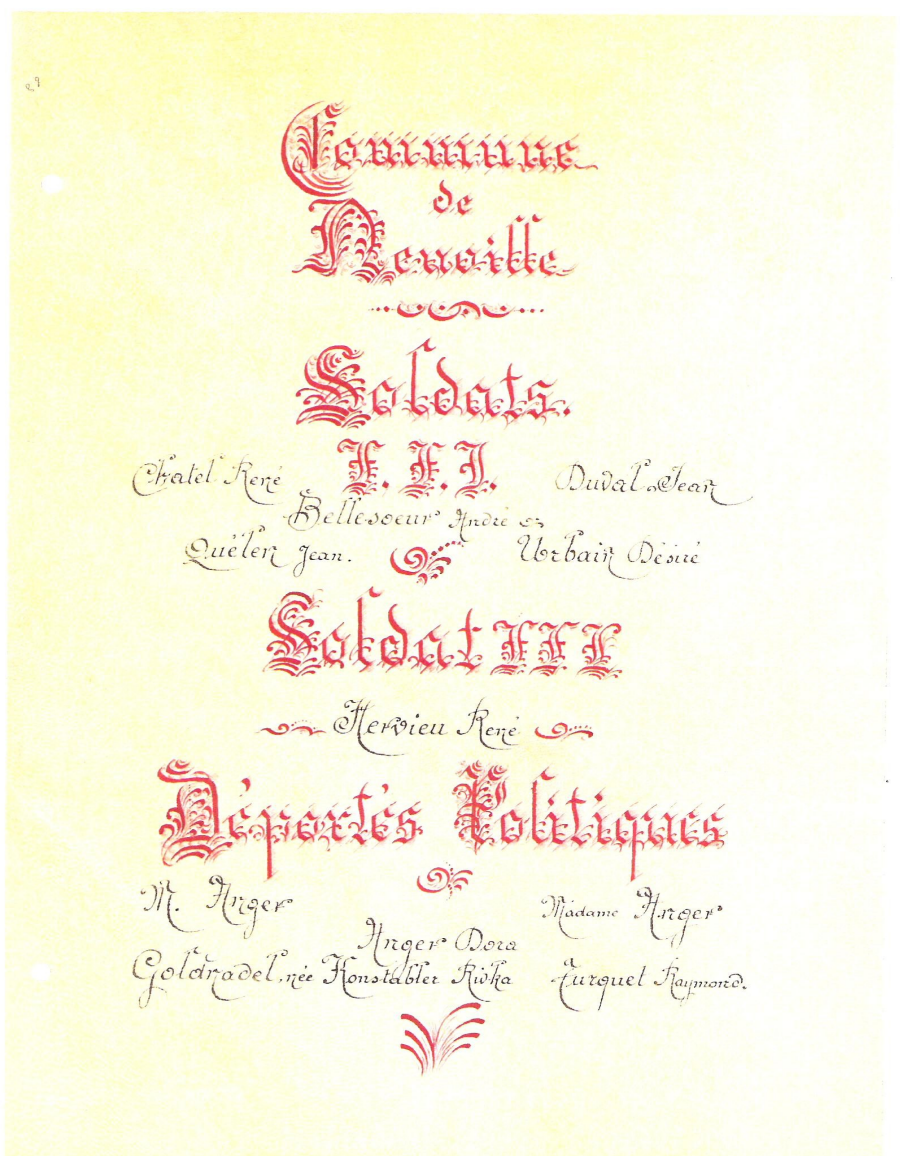 29
Commune
de
Neuville
Soldats.
F.F.I.
Chatel René
Duval Jean
Bellesoeur André
Quéler Jean.
Urbain Désiré
Soldat FFI
Hervieu René
Déportés Politiques
M. Anger
Madame Anger
Anger Dora
Goldnadel, née Konstabler Rivka
Turquet Raymond.